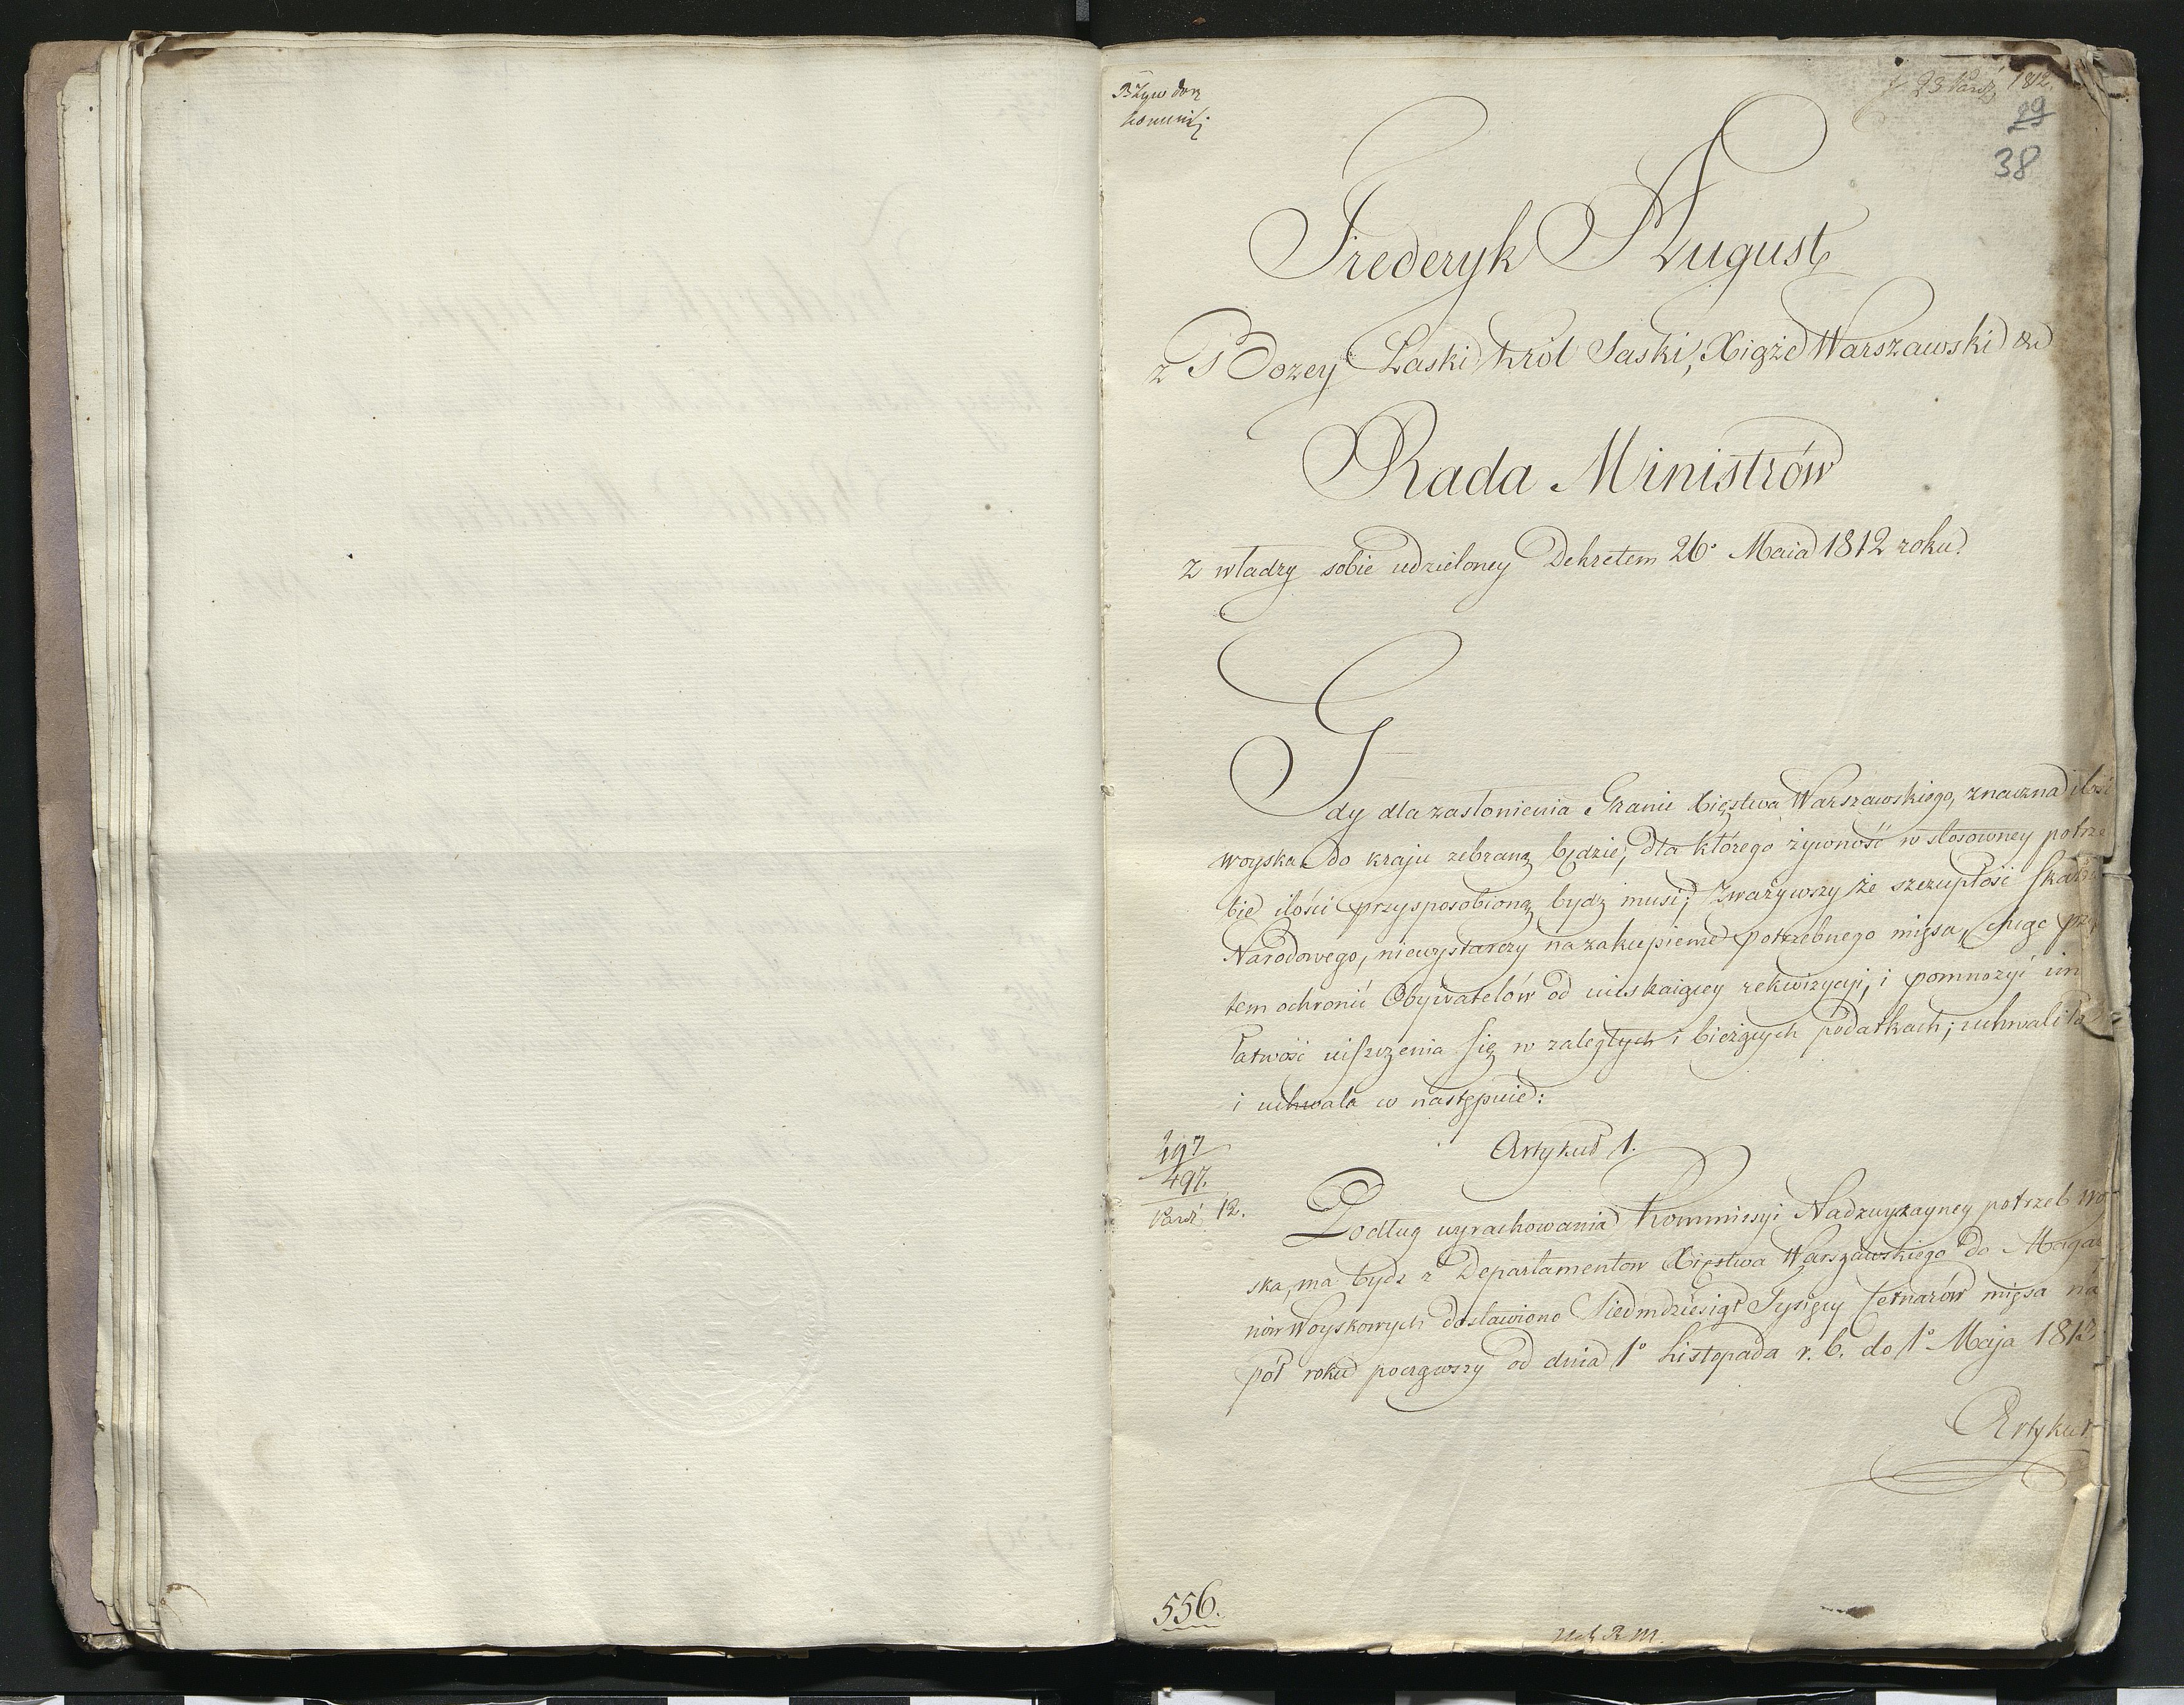 23 Paźź. 1812.
29
38
Fryderyk August
z Bozey Łaski Król Saski, Xiąże Warszawski &c
Rada Ministrów
z władzy sobie udzieloney Dekretem 26° Maia 1812 roku.
Gdy dla zasłonienia Granic Xięstwa Warszawskiego, znaczna ilość
woyska do kraju zebraną będzie, dla którego żywność w stosowney potrze
bie ilości przysposobioną bydź musi; Zważywszy że szczupłość Skarbu
Narodowego, niewystarczy na zakupienie potrzebnego mięsa, chcąc przy
tem ochronić Obywatelów od uciskaiącey rekwizycyi, i pomnożyć im
łatwość uiszczenia się w zaległych i bieżących podatkach; uchwaliła
i uchwala co następuie:
Artykuł 1.
197
497.
Paźdź 12.
Podług wyrachowania Kommissyi Nadzwyczayney potrzeb woy
ska, ma bydź z Departamentow Xięstwa Warszawskiego do Maga
nów Woyskowych dostawiono Siedmdziesiąt Tysięcy Cetnarów mięsa na
pół roku począwszy od dnia 1° Listopada r. b. do 1° Maja 1813.
Artykuł
556.
R M.